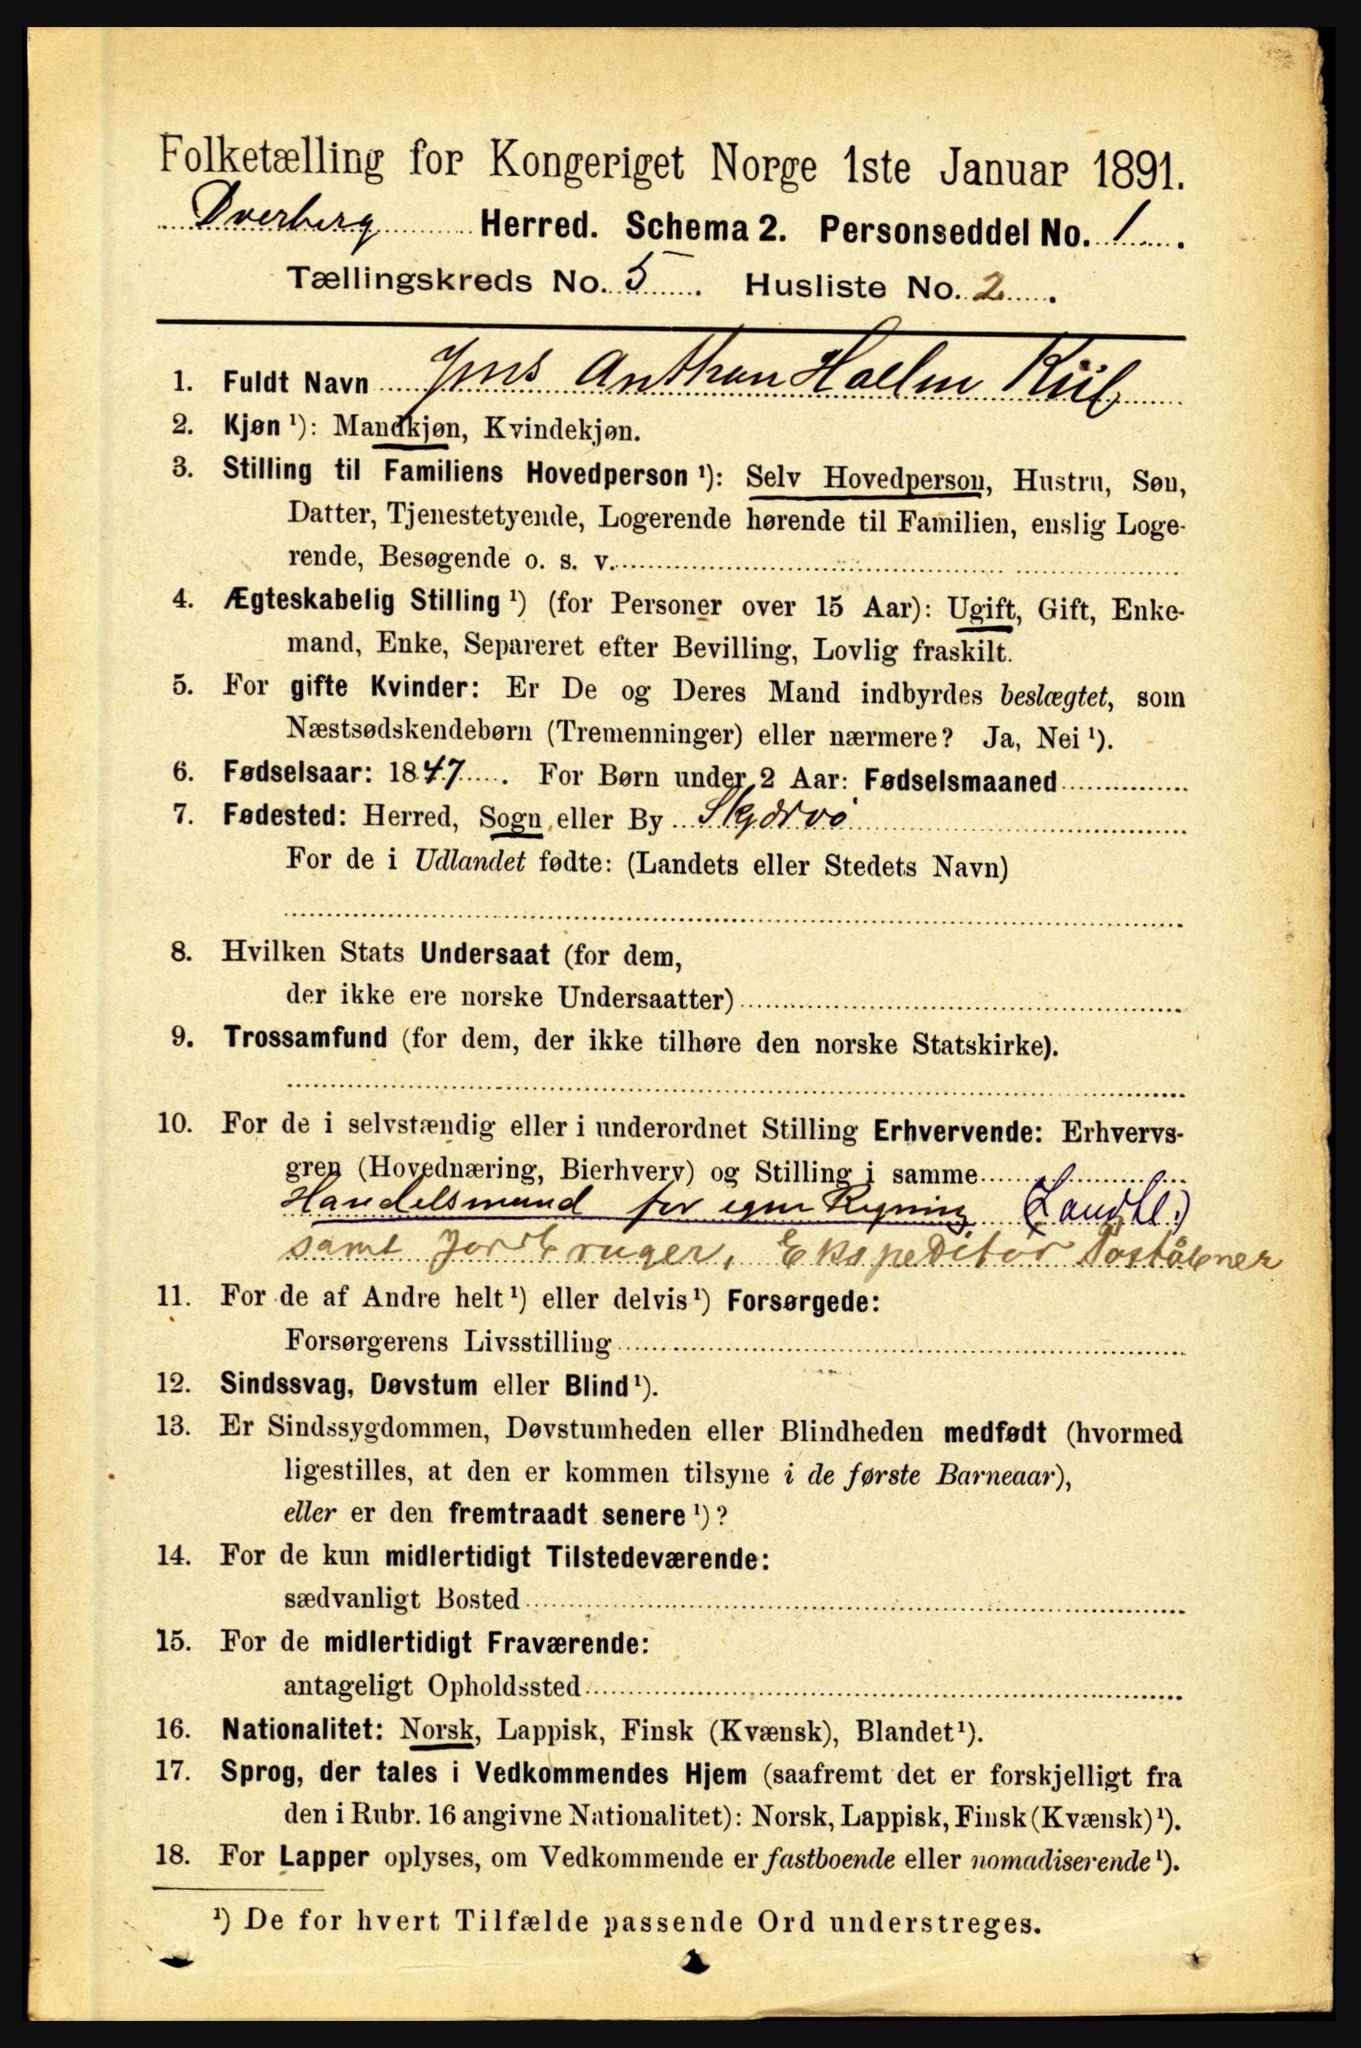 Folketælling for Kongeriget Norge 1ste Januar 1891.
Dverberg Herred. Schema 2. Personseddel No. 1.
Tællingskreds No. 5. Husliste No. 2.
1. Fuldt Navn Jens Anthon Hollm Kiil
2. Kjøn ¹): Mandkjøn, Kvindekjøn.
3. Stilling til Familiens Hovedperson ¹): Selv Hovedperson, Hustru, Søn,
Datter, Tjenestetyende, Logerende hørende til Familien, enslig Loge-
rende, Besøgende o. s. v.
4. Ægteskabelig Stilling ¹) (for Personer over 15 Aar): Ugift, Gift, Enke-
mand, Enke, Separeret efter Bevilling, Lovlig fraskilt.
5. For gifte Kvinder: Er De og Deres Mand indbyrdes beslægtet, som
Næstsødskendebørn (Tremenninger) eller nærmere? Ja, Nei ¹).
6. Fødselsaar: 1847. For Børn under 2 Aar: Fødselsmaaned
7. Fødested: Herred, Sogn eller By Skjærvö
For de i Udlandet fødte: (Landets eller Stedets Navn)
8. Hvilken Stats Undersaat (for dem,
der ikke ere norske Undersaatter)
9. Trossamfund (for dem, der ikke tilhøre den norske Statskirke).
10. For de i selvstændig eller i underordnet Stilling Erhvervende: Erhvervs-
gren (Hovednæring, Bierhverv) og Stilling i samme
Handelsmand for egen Regning (Landhl.)
samt Jordbruger, Ekspeditør Poståbner
11. For de af Andre helt ¹) eller delvis ¹) Forsørgede:
Forsørgerens Livsstilling
12. Sindssvag, Døvstum eller Blind ¹).
13. Er Sindssygdommen, Døvstumheden eller Blindheden medfødt (hvormed
ligestilles, at den er kommen tilsyne i de første Barneaar),
eller er den fremtraadt senere ¹)?
14. For de kun midlertidigt Tilstedeværende:
sædvanligt Bosted
15. For de midlertidigt Fraværende:
antageligt Opholdssted
16. Nationalitet: Norsk, Lappisk, Finsk (Kvænsk), Blandet ¹).
17. Sprog, der tales i Vedkommendes Hjem (saafremt det er forskjelligt fra
den i Rubr. 16 angivne Nationalitet): Norsk, Lappisk, Finsk (Kvænsk) ¹).
18. For Lapper oplyses, om Vedkommende er fastboende eller nomadiserende ¹).
¹) De for hvert Tilfælde passende Ord understreges.